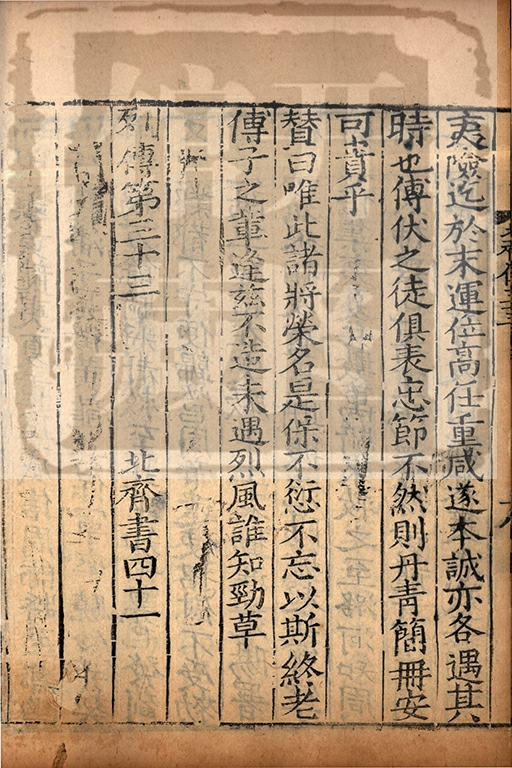 夷險迄於末運位高任重咸遂本誠亦各遇其
時也傅伏之徒俱表忠節不然則丹青簡冊安
可貴乎
贊曰唯此諸將榮名是保不愆不忘以斯終老
傅子之輩逢茲不造未遇烈風誰知勁草
列傳第三十三 北齊書四十一